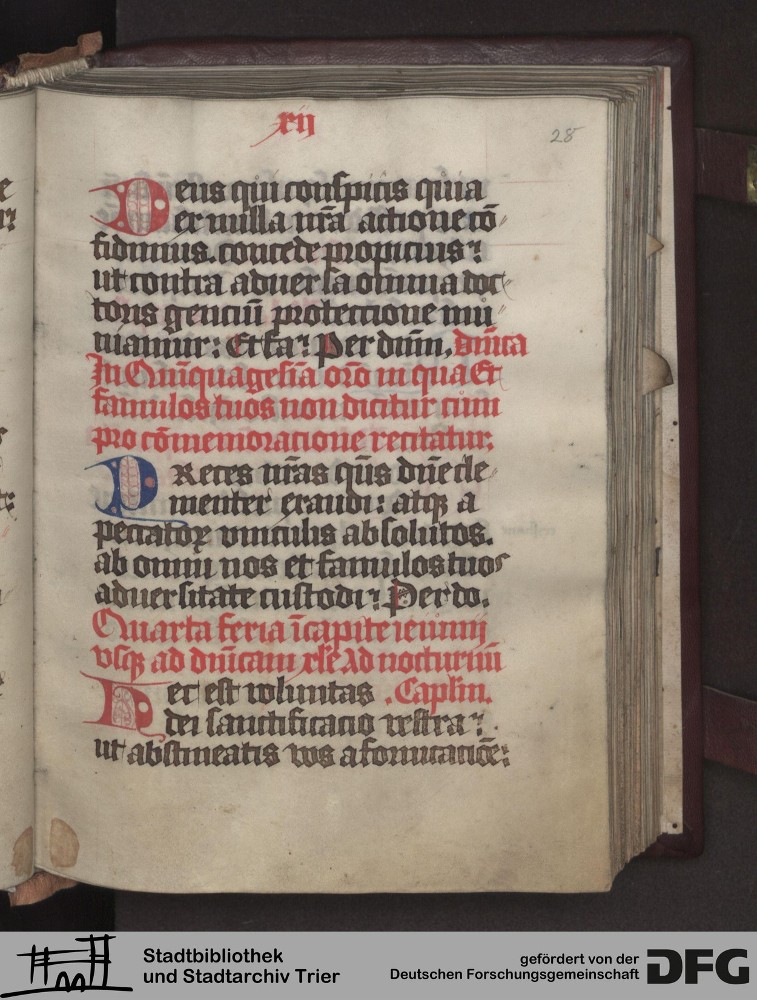 xij
28
Deus qui conspicis quia
ex nulla nr̄a actione cō
fidimus. concede propicius ⁊
ut contra aduersa omnia doc
toris genciū protectione mu
niamur: Et fa ⁊ Per dūm. Dn̄ica
In Quīquagesīa orō in qua Et
famulos tuos non dicitur cum
pro cōmemoracione recitatur.
Preces nr̄as qūs dn̄e cle
menter exaudi: atqꝫ a
peccatoꝝ vinculis absolutos.
ab omni nos et famulos tuos
aduersitate custodi ⁊ Per do.
Quarta feria ī capite ieiunij
vsqꝫ ad dn̄icam xl'e Ad nocturnū
Hec est voluntas . Caplm.
dei sanctificacio vestra ⁊
ut abstineatis vos a fornicacōe:
Stadtbibliothek
und Stadtarchiv Trier
gefördert von der
Deutschen Forschungsgemeinschaft
DFG